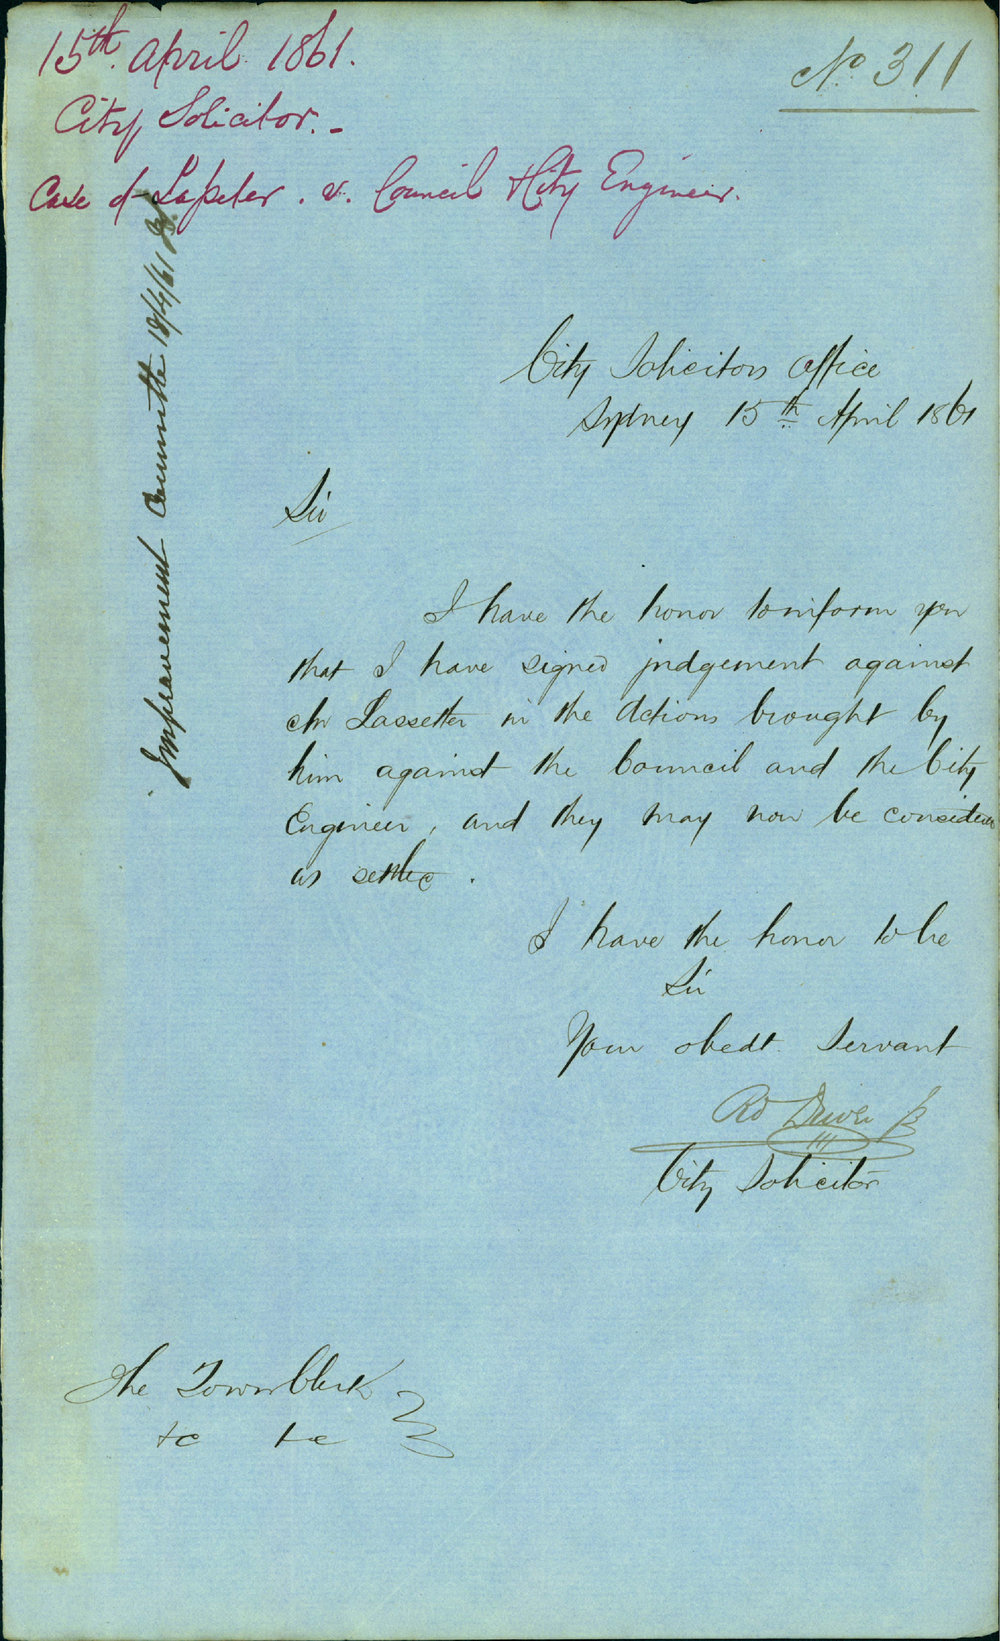 15th. April 1861.
No. 311
City Solicitor. -
Case of Lasseter . v. Council & City Engineer.
Improvement Committee 18/4/61
City Solicitors Office
Sydney 15th April 1861
Sir
I have the honor to inform you
that I have signed judgement against
Mr Lassetter in the Actions brought by
him against the Council and the City
Engineer, and they may now be considered
as settled.
I have the honor to be
Sir
Your obedt. Servant
Rd Driver Jr
City Solicitor
The Town Clerk
&c &c